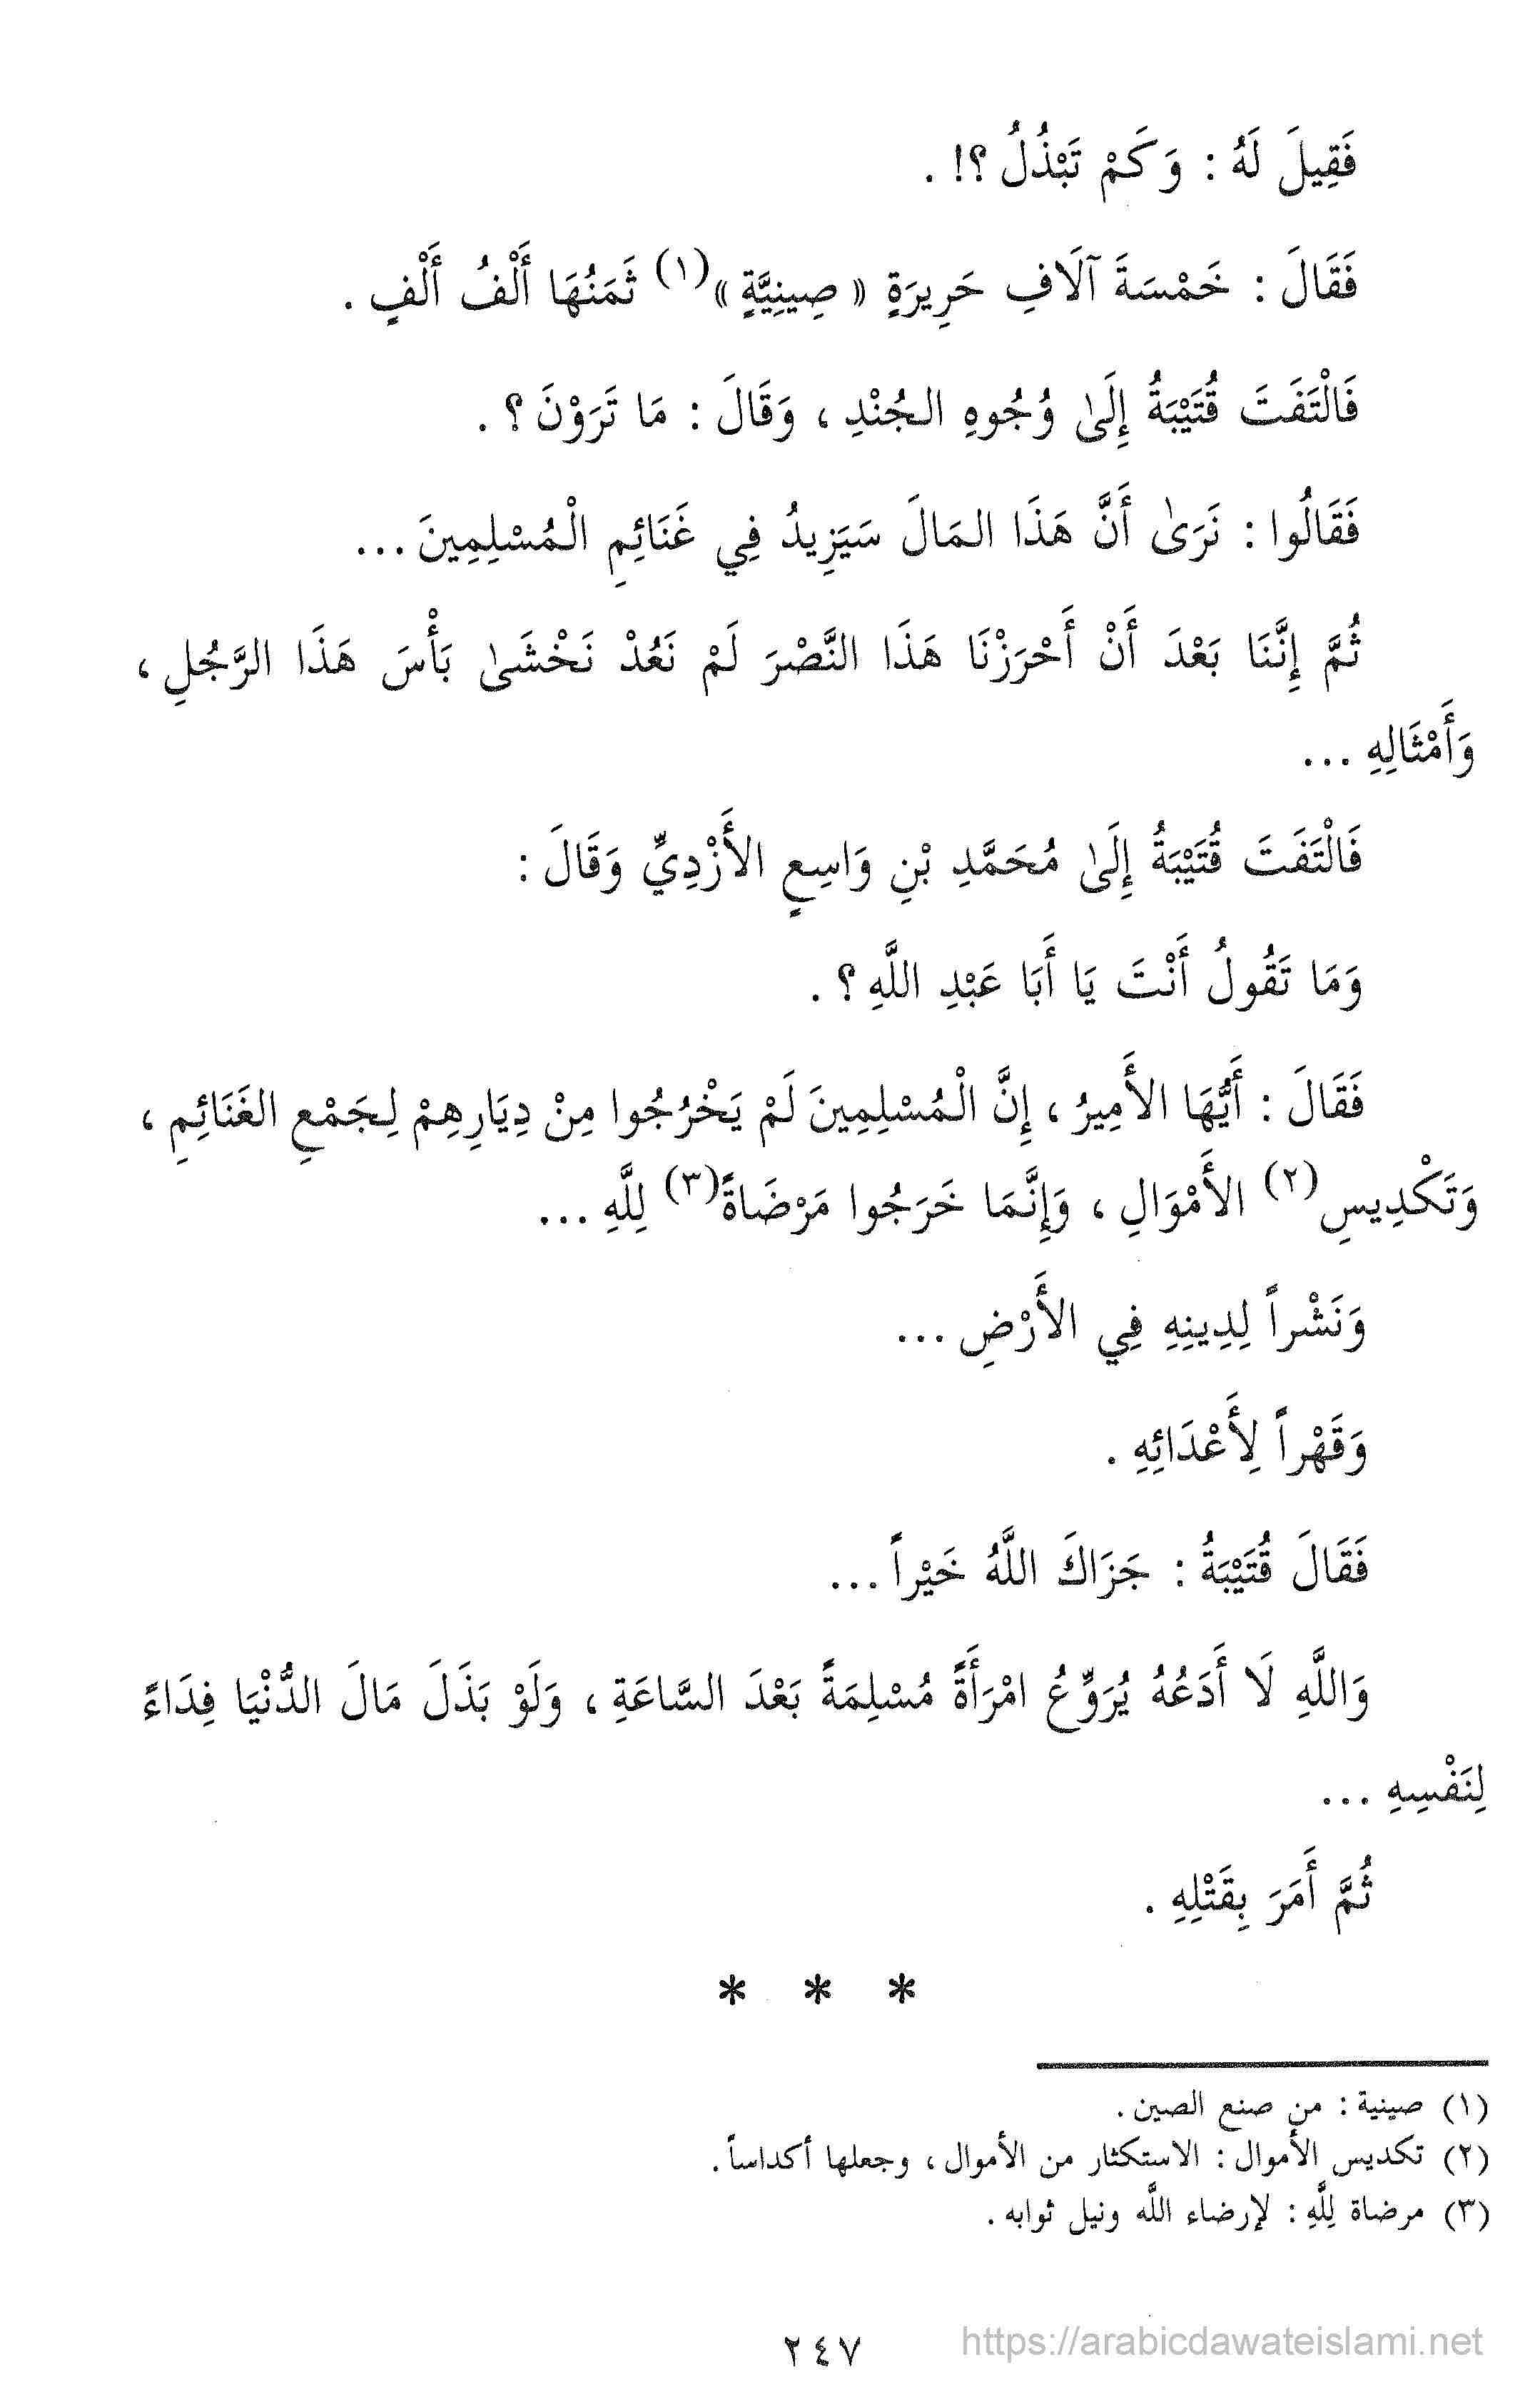 فَقِيلَ لَهُ : وَكَمْ تَبْذُلُ ؟! .
فَقَالَ : خَمْسَةَ آلَافِ حَرِيرَةٍ « صِينِيَّةٍ »(١) ثَمَنُهَا أَلْفُ أَلْفٍ .
فَالْتَفَتَ قُتَيْبَةُ إِلَىٰ وُجُوهِ الجُنْدِ ، وَقَالَ : مَا تَرَوْنَ ؟ .
فَقَالُوا : نَرَىٰ أَنَّ هَذَا المَالَ سَيَزِيدُ فِي غَنَائِمِ الْمُسْلِمِينَ ...
ثُمَّ إِنَّنَا بَعْدَ أَنْ أَحْرَزْنَا هَذَا النَّصْرَ لَمْ نَعُدْ نَخْشَىٰ بَأْسَ هَذَا الرَّجُلِ ،
وَأَمْثَالِهِ ...
فَالْتَفَتَ قُتَيْبَةُ إِلَىٰ مُحَمَّدِ بْنِ وَاسِعٍ الأَزْدِيِّ وَقَالَ :
وَمَا تَقُولُ أَنْتَ يَا أَبَا عَبْدِ اللَّهِ ؟ .
فَقَالَ : أَيُّهَا الأَمِيرُ ، إِنَّ الْمُسْلِمِينَ لَمْ يَخْرُجُوا مِنْ دِيَارِهِمْ لِجَمْعِ الغَنَائِمِ ،
وَتَكْدِيسِ(٢) الأَمْوَالِ ، وَإِنَّمَا خَرَجُوا مَرْضَاةً(٣) لِلَّهِ ...
وَنَشْراً لِدِينِهِ فِي الأَرْضِ ...
وَقَهْراً لِأَعْدَائِهِ .
فَقَالَ قُتَيْبَةُ : جَزَاكَ اللَّهُ خَيْراً ...
وَاللَّهِ لَا أَدَعُهُ يُرَوِّعُ امْرَأَةً مُسْلِمَةً بَعْدَ السَّاعَةِ ، وَلَوْ بَذَلَ مَالَ الدُّنْيَا فِدَاءً
لِنَفْسِهِ ...
ثُمَّ أَمَرَ بِقَتْلِهِ .
* * *
(١) صينية : من صنع الصين .
(٢) تكديس الأموال : الاستكثار من الأموال ، وجعلها أكداساً .
(٣) مرضاة لِلَّهِ : لإرضاء اللَّه ونيل ثوابه .
٢٤٧
https://arabicdawateislami.net